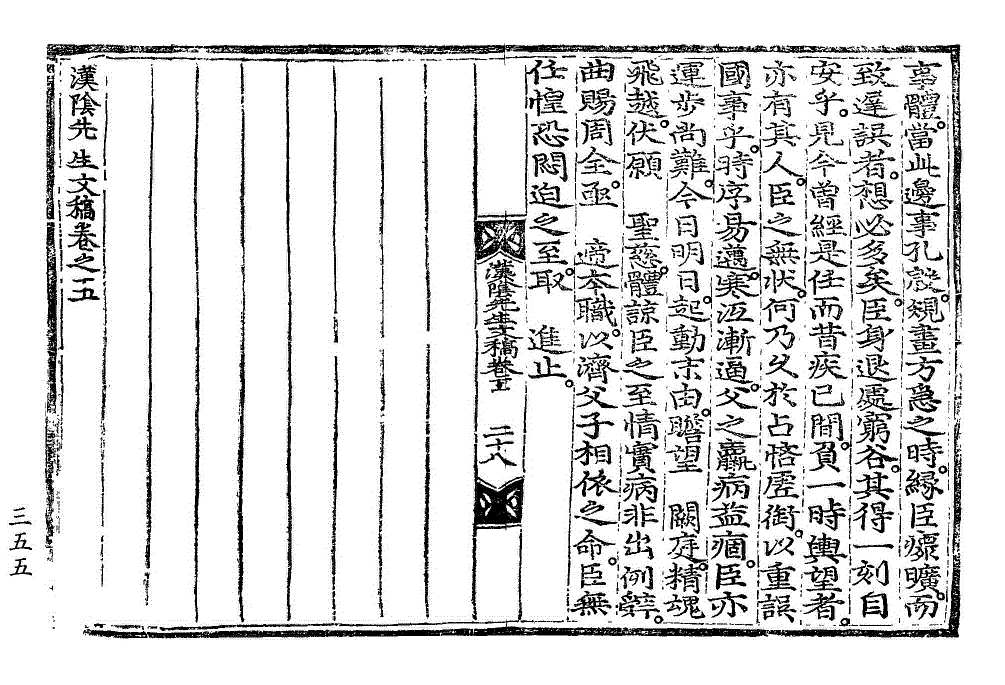 事體。當此邊事孔殷。規畫方急之時。緣臣癏曠。而
致違誤者。想必多矣。臣身退處窮谷。其得一刻自
安乎。見今曾經是任而昔疾已間。負一時輿望者。
亦有其人。臣之無狀。何乃久於占悋虛銜。以重誤
國事乎。時序易邁。寒沍漸逼。父之羸病益痼。臣亦
運步尙難。今日明日。起動末由。瞻望 闕庭。精魂
飛越。伏願 聖慈。體諒臣之至情實病非出例辭。
曲賜周全。亟 遞本職。以濟父子相依之命。臣無
任惶恐悶迫之至。取 進止。
漢陰先生文稿卷之五
二十八
漢陰先生文稿卷之五
三五五